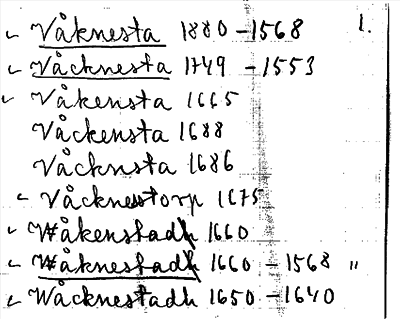 Våknesta 1880-1568 1.
Våcknesta 1749 - 1553
Våkensta 1665
Våckensta 1688
Våcknsta 1686
Våcknestorp 1675
Wåkenstadh 1660
Wåknestadh 1660 - 1568 "
Wåcknestadh 1650 - 1640